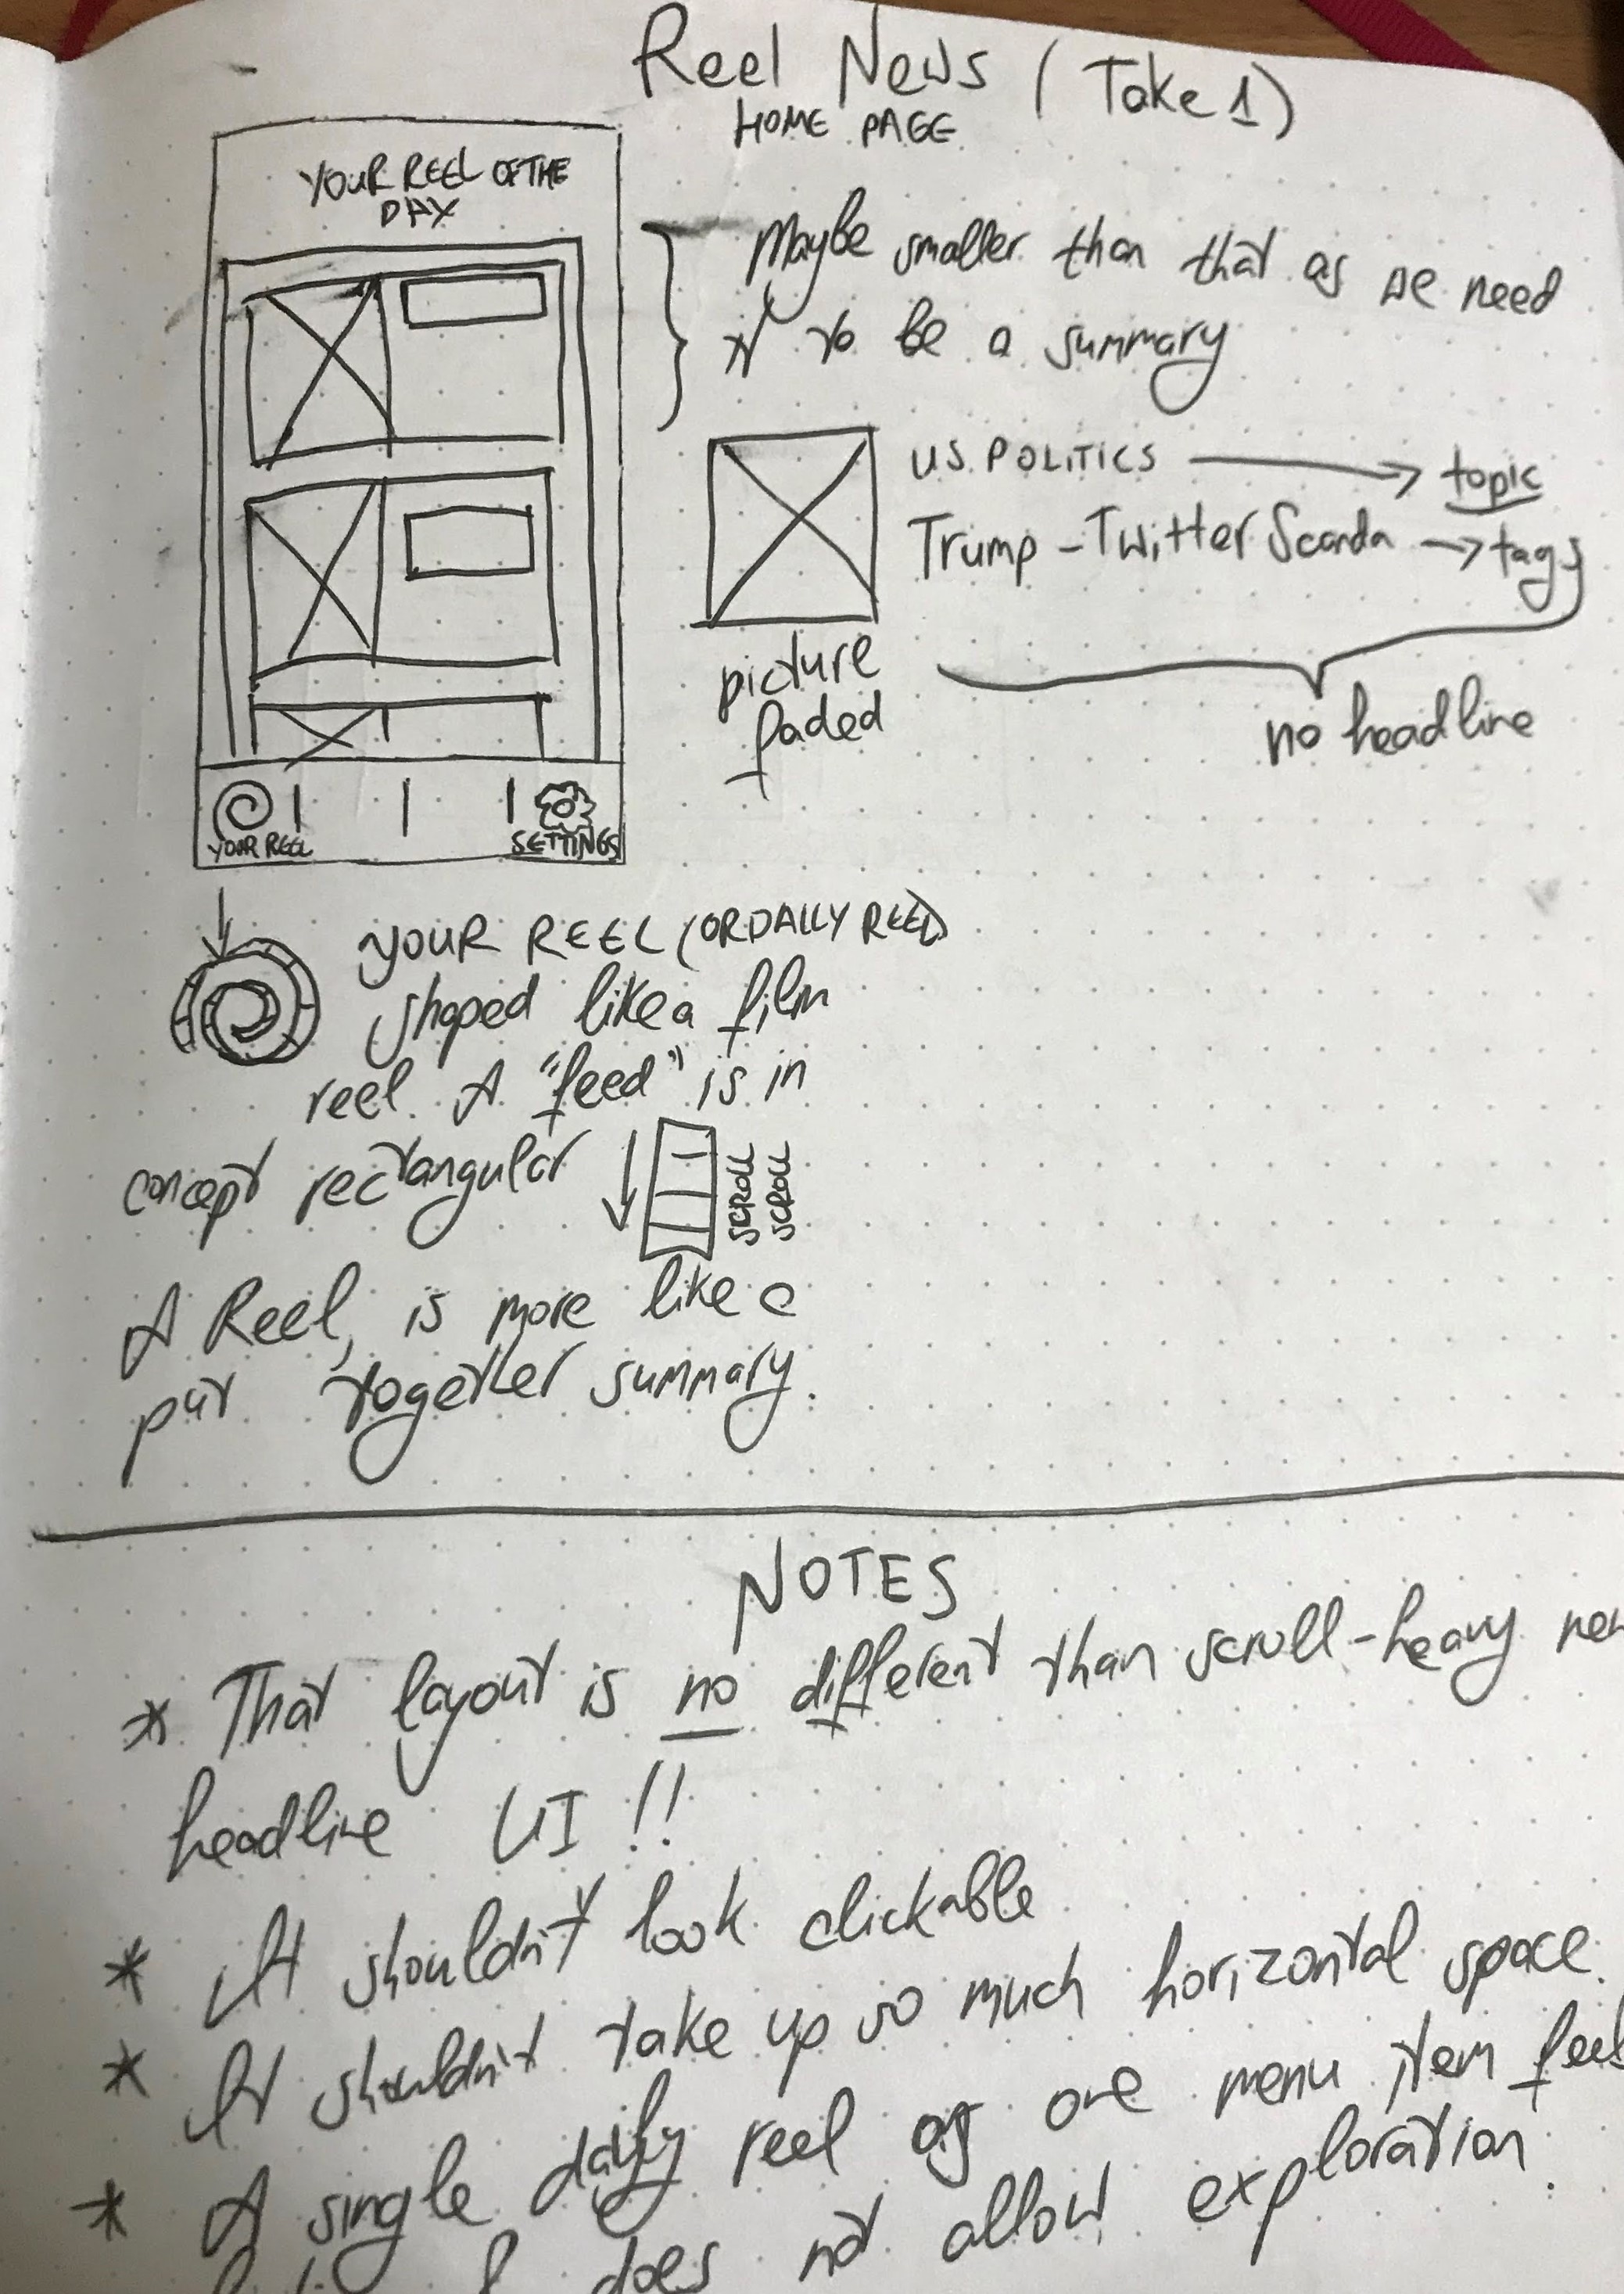 Reel News (Take 1)
HOME PAGE
YOUR REEL OF THE
DAY
Maybe smaller than that as we need
it to be a summary
US. POLITICS → topic
Trump - Twitter Scanda → tags
picture
faded
no headline
YOUR REEL
SETTINGS
YOUR REEL (OR DAILLY REEL)
shaped like a film
reel. A "feed" is in
concept rectangular
SCROLL
SCROLL
A Reel, is more like a
put together summary.
NOTES
* That layout is no different than scroll-heavy new
headline UI !!
* It shouldn't look clickable
* It shouldn't take up so much horizontal space.
* A single daily reel as one menu item feel
does not allow exploration.